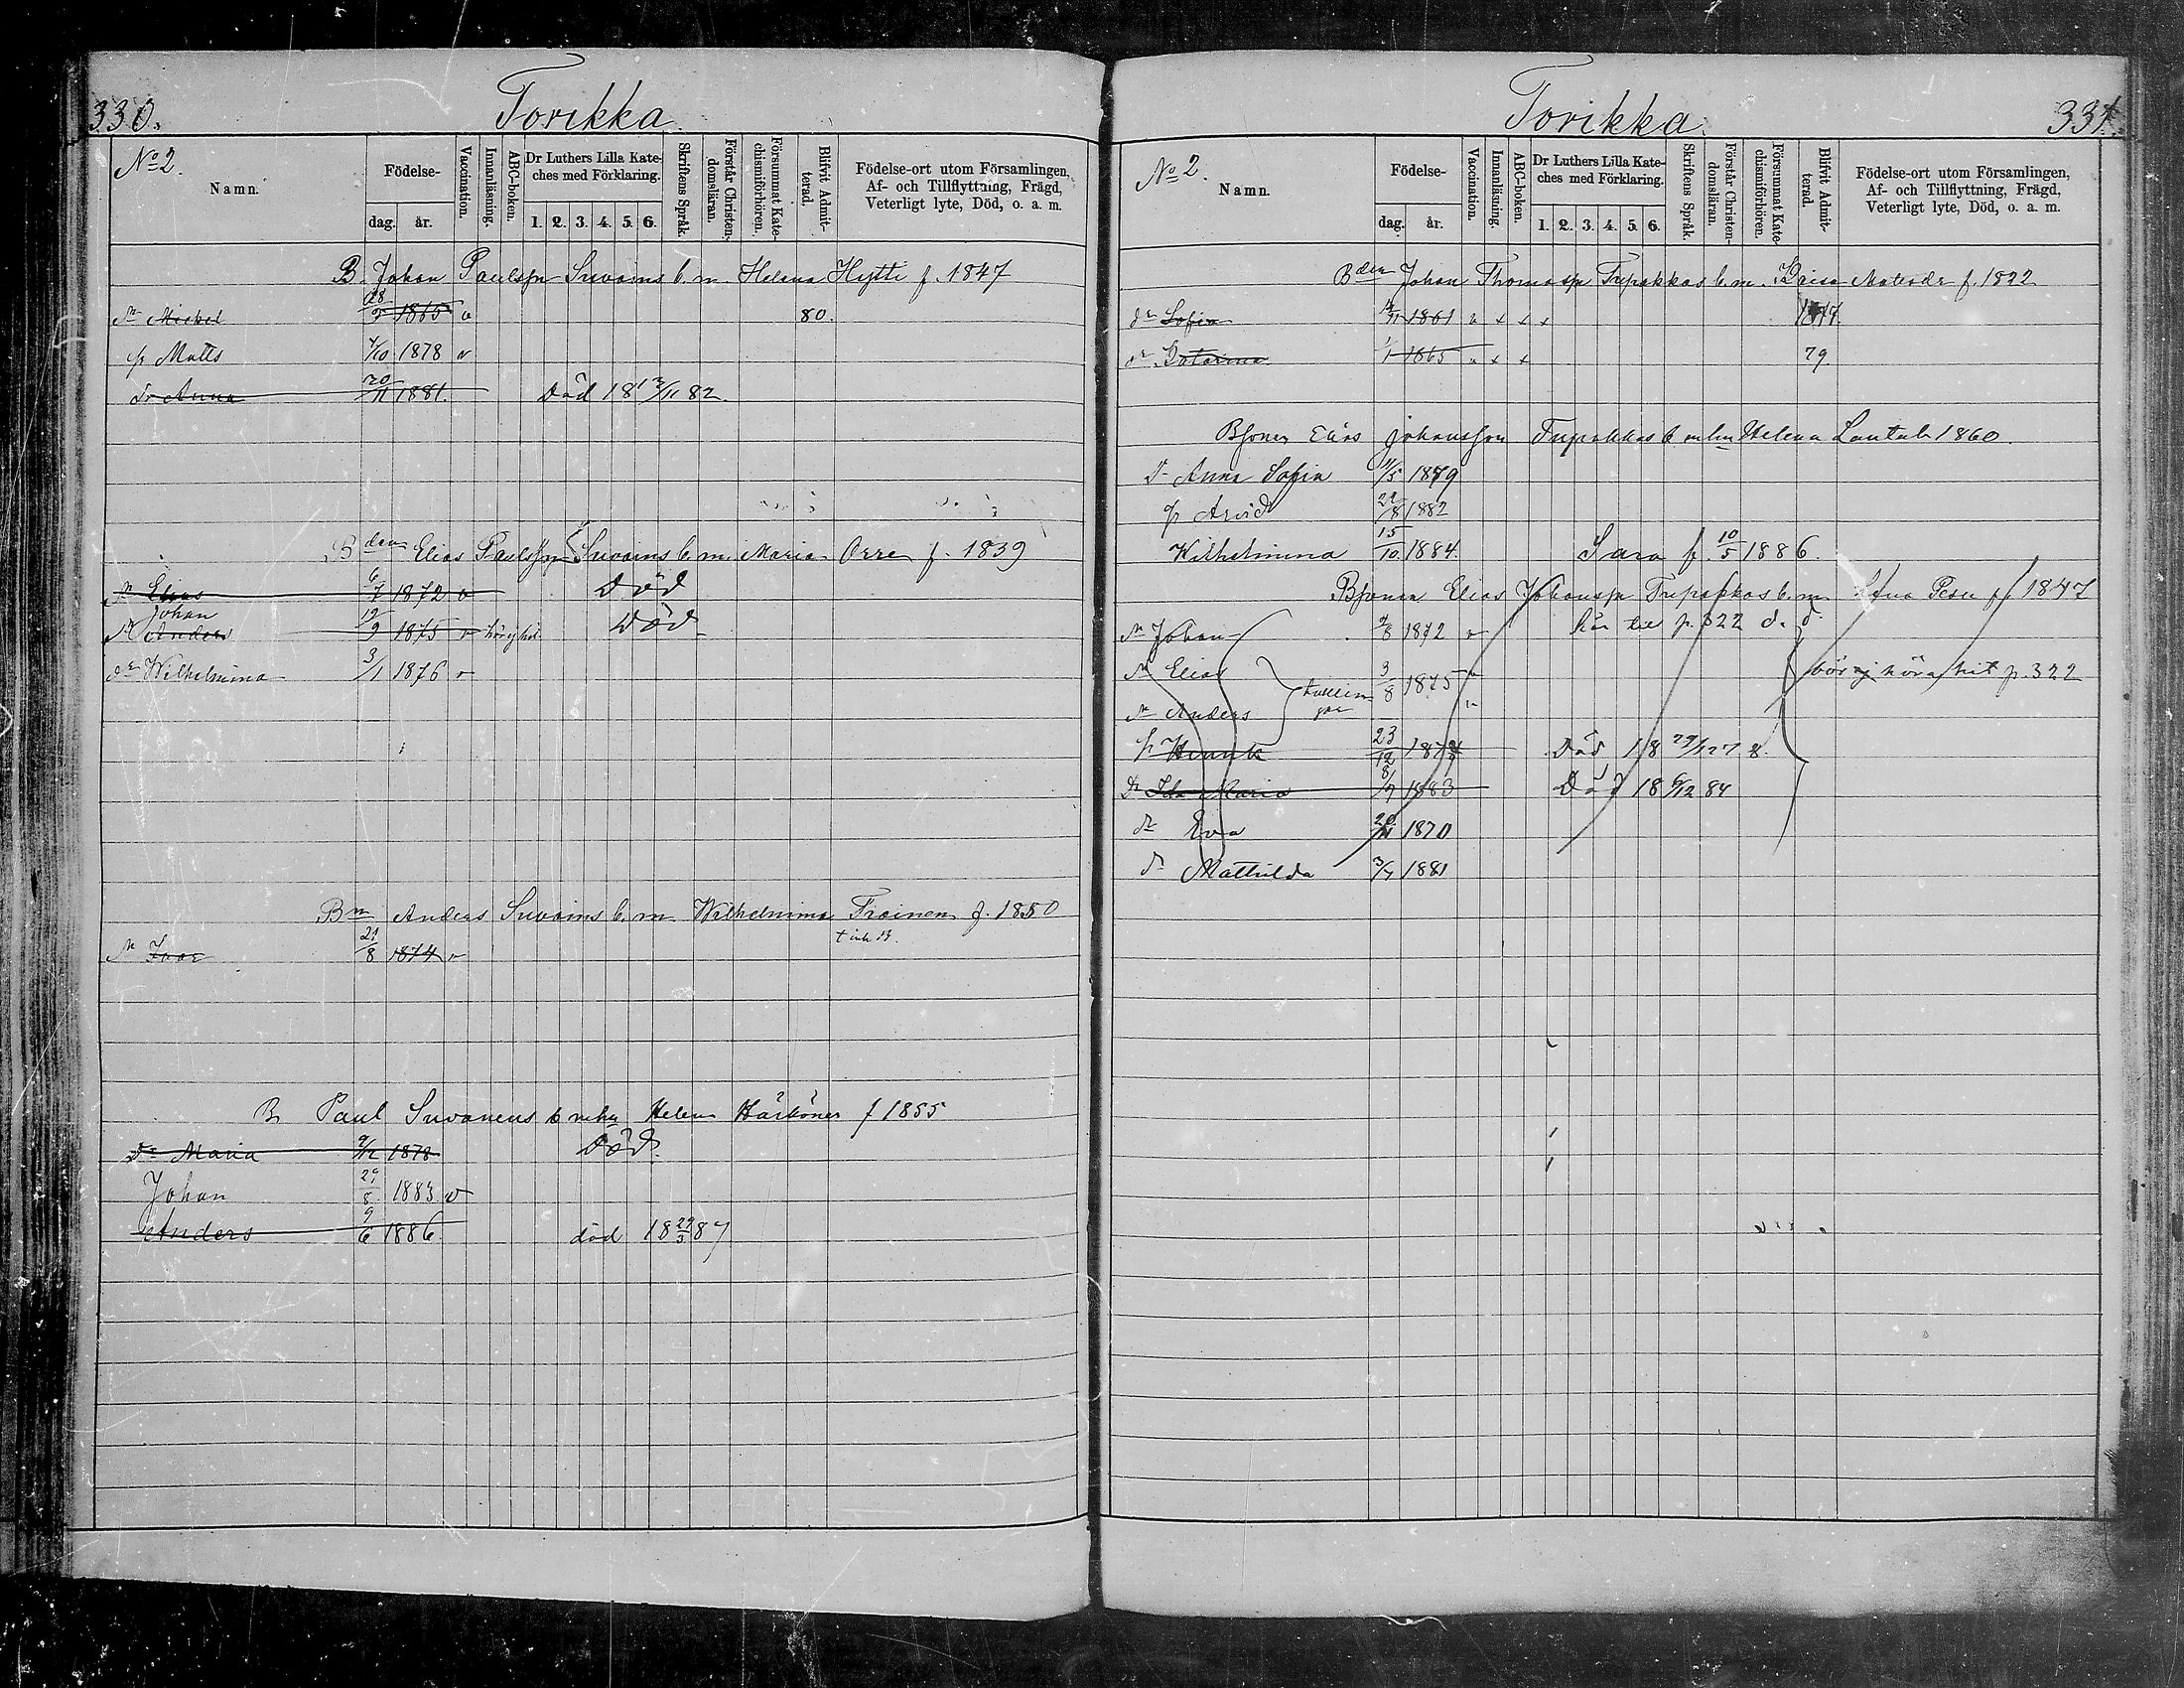 330.
Torikka
No 2.
Namn.
Födelse-
dag. år.
Vaccination.
Innanläsning.
ABC-boken.
Dr Luthers Lilla Kate-
ches med Förklaring.
1. 2. 3. 4. 5. 6.
Skriftens Språk.
Förstår Christen-
domsläran.
Försummat Kate-
chismiförhören.
Blifvit Admit-
terad.
Födelse-ort utom Församlingen,
Af- och Tillflyttning, Frägd,
Veterligt lyte, Död, o. a. m.
B. Johan Paulsson Suvoins b. m. Helena Hytti f. 1847
Sn Michel 28/5 1865 v 80.
Sn Matts 4/10 1878 v
dr Anna 20/11 1881. Död 18 13/11 82.
Bden Elias Paulsson Suvoins b. m. Maria Orre f. 1839
Sn Elias 6/7 1872 v Död
Johan
Sn Anders 12/9 1875 v Död
dr Wilhelmina 3/1 1876 v
Bn Anders Suvoins b. m. Wilhelmina Troinen f. 1850
Sn Ivar 21/8 1874 v
B Paul Suvanens b m hu Helena Härkönen f 1855
Dr Maria 9/12 1878 Död.
Johan 29/8 1883 v
Anders 9/6 1886 död 18 29/3 87
Torikka.
331.
No 2.
Namn.
Födelse-
dag. år.
Vaccination.
Innanläsning.
ABC-boken.
Dr Luthers Lilla Kate-
ches med Förklaring.
1. 2. 3. 4. 5. 6.
Skriftens Språk.
Förstår Christen-
domsläran.
Försummat Kate-
chismiförhören.
Blifvit Admit-
terad.
Födelse-ort utom Församlingen,
Af- och Tillflyttning, Frägd,
Veterligt lyte, Död, o. a. m.
Bden Johan Thomasson Tupakkas b. m. Kaisa f. 1822
dr Sofia 1861 v x x x
dr Catarina 1/1 1865 x x 79.
Bsonen Elias Johansson Tupakkas b m hu Helena Lautala 1860.
dr Anna Sofia 4/5 1879
sn Arvid 29/8 1882
Wilhelmina 15/10 1884. Sara f. 10/5 1886.
Bsonen Elias Johansson Tupakkas b. m. Stina Pesu f 1847
Sn Johan 9/8 1872 v hör till p. 322 d. d.
Sn Elias 3/8 1875 v bör ej höra hit p. 322
tvillin-
gar
Sn Anders
sn Henrik 23/12 Död 18 29/12 78.
Dr Ida Maria 8/7 1883 Död 18 6/12 84
dr Eva 20/11 1870
dr Mathilda 3/7 1881